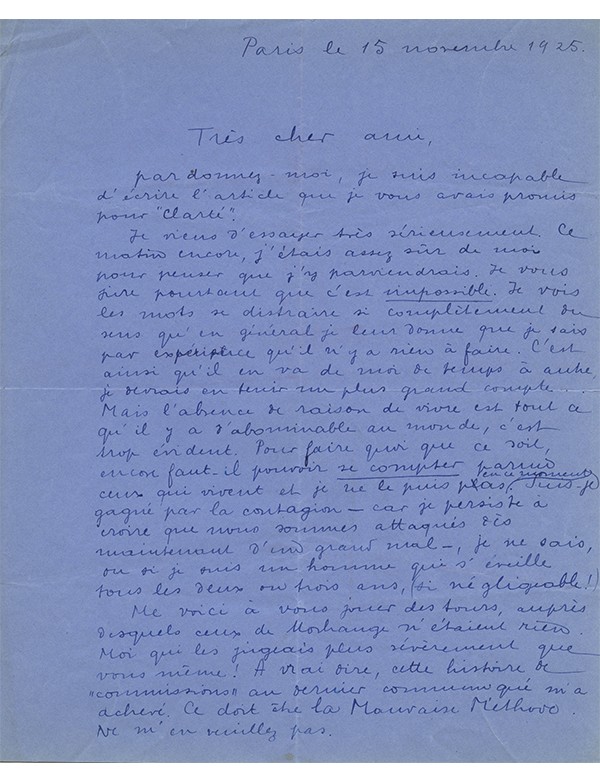 Paris le 15 novembre 1925.
Très cher ami,
pardonnez-moi, je suis incapable
d'écrire l'article que je vous avais promis
pour "Clarté".
Je viens d'essayer très sérieusement. Ce
matin encore, j'étais assez sûr de moi
pour penser que j'y parviendrais. Je vous
jure pourtant que c'est impossible. Je vois
les mots se distraire si complètement du
sens qu'en général je leur donne que je sais
par expérience qu'il n'y a rien à faire. C'est
ainsi qu'il en va de moi de temps à autre,
je devrais en tenir un plus grand compte...
Mais l'absence de raison de vivre est tout ce
qu'il y a d'abominable au monde, c'est
trop évident. Pour faire quoi que ce soit,
encore faut-il pouvoir se compter parmi
ceux qui vivent et je ne le puis pas en ce moment. Suis-je
gagné par la contagion — car je persiste à
croire que nous sommes attaqués dès
maintenant d'un grand mal —, je ne sais,
ou si je suis un homme qui s'éveille
tous les deux ou trois ans, (si négligeable!)
Me voici à vous jouer des tours, auprès
desquels ceux de Morhange n'étaient rien.
Moi qui les jugeais plus sévèrement que
vous même! A vrai dire, cette histoire de
"commissions" au dernier communiqué m'a
achevé. Ce doit être la Mauvaise Méthode.
Ne m'en veuillez pas.